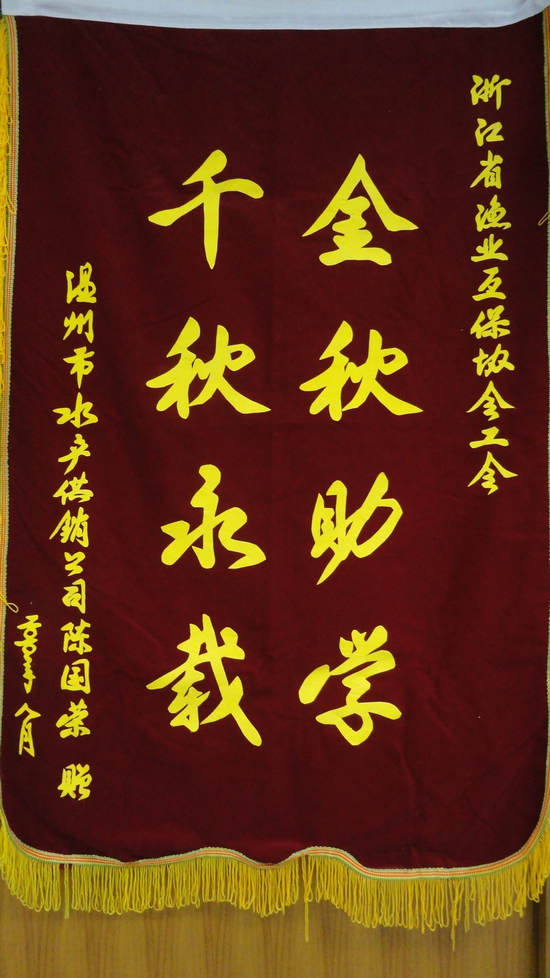 浙江省渔业互保协会工会
金秋助学
千秋永载
温州市水产供销公司陈国荣 赠
八月